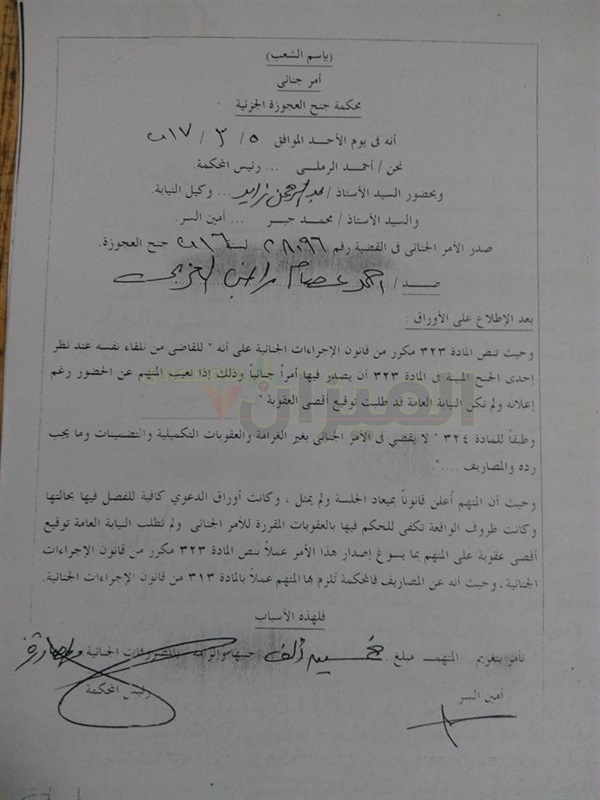 (باسم الشعب)
أمر جنائى
محكمة جنح العجوزة الجزئية
أنه فى يوم الأحد الموافق ٥ / ٣ / ٢٠١٧
نحن / أحمد الرملى ... رئيس المحكمة.
وبحضور السيد الأستاذ / عبد الرحمن زايد ... وكيل النيابة.
والسيد الأستاذ / محمد جبر ... أمين السر.
صدر الأمر الجنائى فى القضية رقم ٢٨٠٩٦ لسنة ٢٠١٦ جنح العجوزة.
ضد / احمد عصام
بعد الإطلاع على الأوراق :
وحيث تنص المادة ٣٢٣ مكرر من قانون الإجراءات الجنائية على أنه " للقاضى من تلقاء نفسه عند نظر
إحدى الجنح المبينة فى المادة ٣٢٣ أن يصدر فيها أمراً جنائياً وذلك إذا تغيب المتهم عن الحضور رغم
إعلانه ولم تكن النيابة العامة قد طلبت توقيع أقصى العقوبة "
وطبقاً للمادة ٣٢٤ " لا يقضي فى الأمر الجنائى بغير الغرامة والعقوبات التكميلية والتضمينات وما يجب
رده والمصاريف ....".
وحيث أن المتهم أعلن قانوناً بميعاد الجلسة ولم يمثل ، وكانت أوراق الدعوي كافية للفصل فيها بحالتها
وكانت ظروف الواقعة تكفى للحكم فيها بالعقوبات المقررة للأمر الجنائى ولم تطلب النيابة العامة توقيع
أقصى عقوبة على المتهم بما يسوغ إصدار هذا الأمر عملاً بنص المادة ٣٢٣ مكرر من قانون الإجراءات
الجنائية ، وحيث أنه عن المصاريف فالمحكمة تلزم بها المتهم عملاً بالمادة ٣١٣ من قانون الإجراءات الجنائية.
فلهذه الأسباب
نأمر بتغريم المتهم مبلغ خمسين ألف جنيها والزامه الجنائية
أمين السر
رئيس المحكمة
الميزان